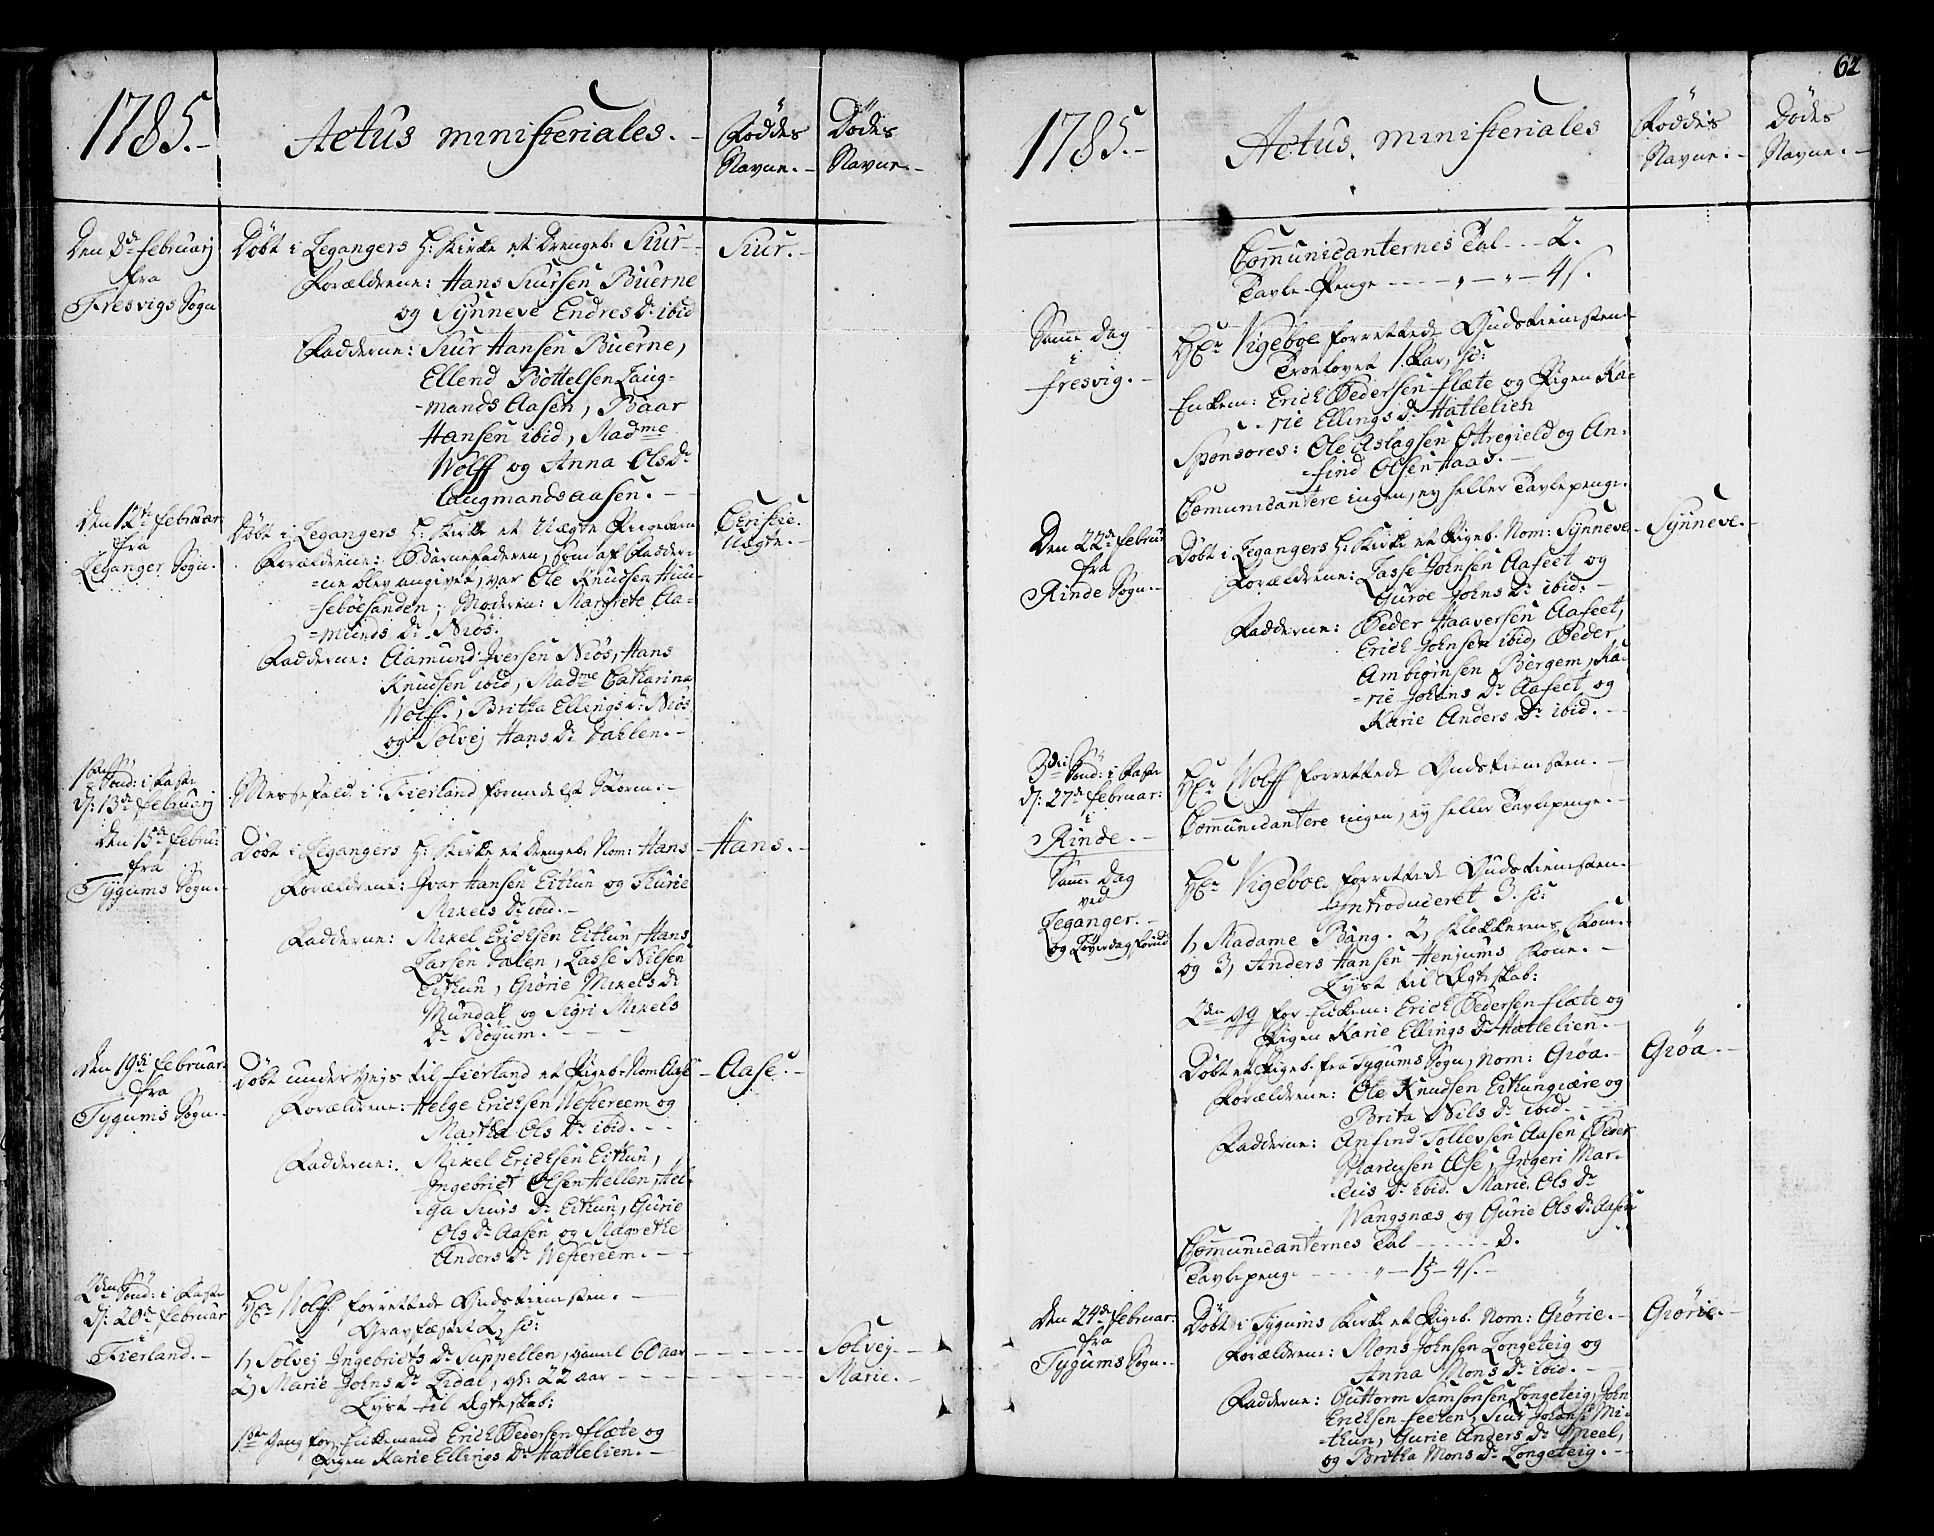 1785.-
Actus ministeriales.-
Föddes
Navne.-
Dödes
Navne.-
Den 8de februarj
fra
Fresvigs Sogn
Döbt i Legangers H: Kirke et Drengeb. Siur-
Forældrene: Hans Siursen Buerne
og Synneve Endres Dr ibid
Fadderne: Siur Hansen Buerne,
Ellend Bottelsen Laug-
-mands Aasen, Baar
Hansen ibid, Madme
Wolff og Anna Ols Dr
Laugmandsaasen.-
Siur.-
Den 12te februar:
fra
Leganger Sogn.
Döbt i Legangers H: Kirke et Uægte Pigebarn
Forældrene: Barnefaderen, som af Fadder-
-ne blev angiven, var Ole Knudsen Huu-
-seböesanden; Moderen: Margrete Aa-
-munds Dr Niös.
Fadderne: Aamund Iversen Niös, Hans
Knudsen ibid, Madme Catharina
Wolff, Britha Ellings Dr Niös
og Solvej Hans Dr Dahlen.-
Christie.
Uægte.-
1ste Sönd: i Faste
d: 13de februarj
Messefald i Fierland formedelst Storm.-
Den 15de febru:
fra
Tygums Sogn.-
Döbt i Legangers H: Kirke et Drengeb. Nom: Hans
Forældrene: Ivar Hansen Eithun og Thurie
Mikels Dr ibid.-
Fadderne: Mikel Erichsen Eithun, Hans
Larsen Dalen, Lasse Nilsen
Eithun, Giörie Mikels Dr
Mundal og Sigri Mikels
Dr Bögum.-
Hans.-
Den 19de februar:
fra
Tygums Sogn.-
Döbt under Vejs til Fierland et Pigeb. Nom: Aase
Forældrene: Helge Erichsen Westereem og
Martha Ols Dr ibid.-
Fadderne: Mikel Erichsen Eithun,
Ingebrict Olsen Hellen, Hel-
-ga Siurs Dr Eithun, Gurie
Ols Dr Aasen og Magrethe
Anders Dr Westereem.-
Aase.-
2den Sönd: i Faste
d: 20de februar
i
Fierland.-
Hr Wolff forrettede Gudstienesten.-
Gravfæstet 2, sc:
1, Solvej Ingebricts Dr Suppellen, gaml 60 aar
2, Marie Johns Dr Lidal, gl: 22 aar
Lyst til Ægteskab:
1ste Gang for Enkemand Erich Pedersen flæte og
Pigen Karie Ellings Dr Hatlelien.-
Solvej.-
Marie.-
62
1785.-
Actus ministeriales
Föddes
Navne.-
Dödes
Navne.-
Communicanternes Tal - - - 2.
Tavle-Penge - - - - „ - „ - 4 s.
Samme Dag
i
fresvig.-
Hr Vigeboe forrettede Gudstienesten.-
Troelovet 1 Par, sc:
Enkem: Erich Pedersen flæte og Pigen Ka-
-rie Ellings Dr Hatlelien
Sponsores: Ole Aslagsen Ottregield og An-
-find Olsen Haas.-
Communicantere ingen, ey heller Tavlepenge.
Den 22de februa
fra
Rinde Sogn.-
Döbt i Legangers H: Kirke et Pigeb. Nom: Synneve
Forældrene: Lasse Johnsen Aafeet og
Guroe Johns Dr ibid.-
Fadderne: Peder Haaversen Aafeet,
Erich Johnsen ibid, Peder
Ambiörnsen Bergem, Ka-
-rie Johans Dr Aafeet og
Karie Anders Dr ibid.-
Synneve.-
3die Sönd: i Faste
d: 27de februar:
i
Rinde.-
Hr Wolff forrettede Gudstienesten.-
Communicantere ingen, ey heller Tavlepenge.-
Samme Dag
ved
Leganger.-
og Löverdag forud
Hr Vigeboe forrettede Gudstienesten.-
Introduceret 3. sc:
1, Madame Bang. 2, Klokkerens Kone.-
og 3, Anders Hansen Henjums Kone.-
Lyst til Ægteskab:
2den gg for Enkem: Erich Pedersen flæte og
Pigen Karie Ellings Dr Hatlelien.-
Döbt et Pigeb. fra Tygums Sogn, Nom: Giöa.-
Forældrene: Ole Knudsen Eithungiære og
Brita Nils Dr ibid.-
Fadderne: Anfind Tollevsen Aasen, Peder
Marcusen Ase, Ingeri Mar-
-cus Dr ibid. Marie Ols Dr
Wangsnæs og Gurie Ols Dr Aasen
Giöa.-
Communicanternes Tal - - - - 8.
Tavlepenge - - - - „ - 1 - 4 s.-
Den 24de februar:
fra
Tygums Sogn.-
Döbt i Tygums Kirke et Pigeb. Nom: Giörie.-
Forældrene: Mons Johnsen Longeteig og
Anna Mons Dr ibid.-
Fadderne: Guttorm Samsonsen Longeteig, John
Erichsen feeten, Siur Johans: Mi-
-thun, Gurie Anders Dr Meel,
og Britha Mons Dr Longeteig.-
Giörie.-